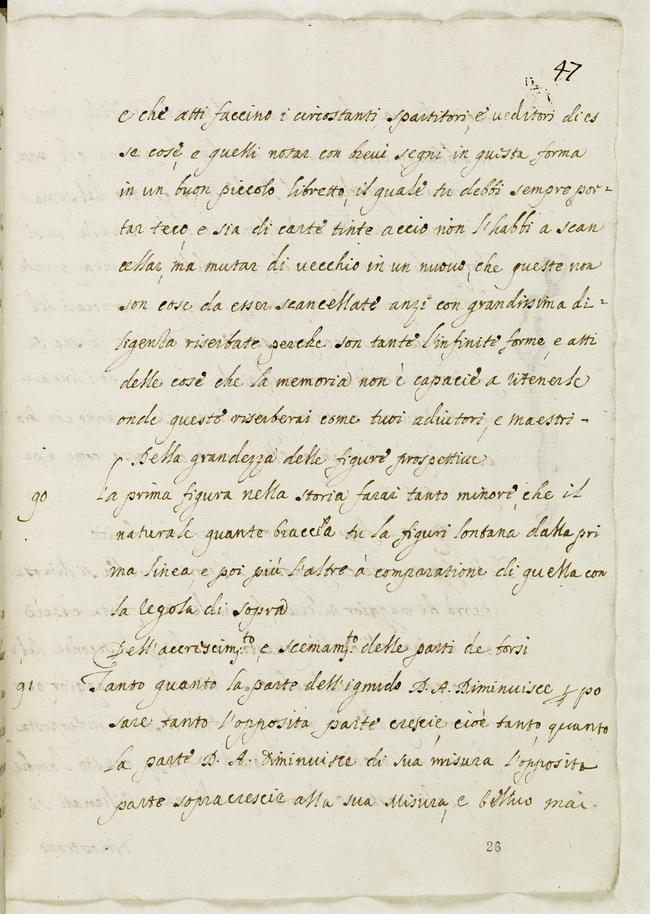 47
e che atti faccino i circostanti, spartitori, e veditori di es
se cose, e quelli notar con brevi segni in questa forma
in un buon piccolo libretto, il quale tu debbi sempre por=
tar teco, e sia di carte tinte accio non l'habbi a scan
cellar, ma mutar di vecchio in un nuovo, che queste non
son cose da esser scancellate anzi con grandissima di=
ligenza riserbate perche son tante l'infinite forme, e atti
delle cose che la memoria non è capacie a ritenerle
onde queste riserberai come tuoi adiutori, e maestri-
Della grandezza delle figure prospettive
90 La prima figura nella storia farai tanto minore, che il
naturale quante braccia tu la figuri lontana dalla pri
ma linea, e poi più l'altre à comparatione di quella con
la regola di sopra
Dell'accrescim.to e scemam.to delle parti de torsi
91 Tanto quanto la parte dell'ignudo D. A. Diminuisce po
sare tanto l'opposita parte crescie, cioè tanto, quanto
la parte D. A. Diminuisce di sua misura l'opposita
parte sopracrescie alla sua Misura, e bellico mai.
26